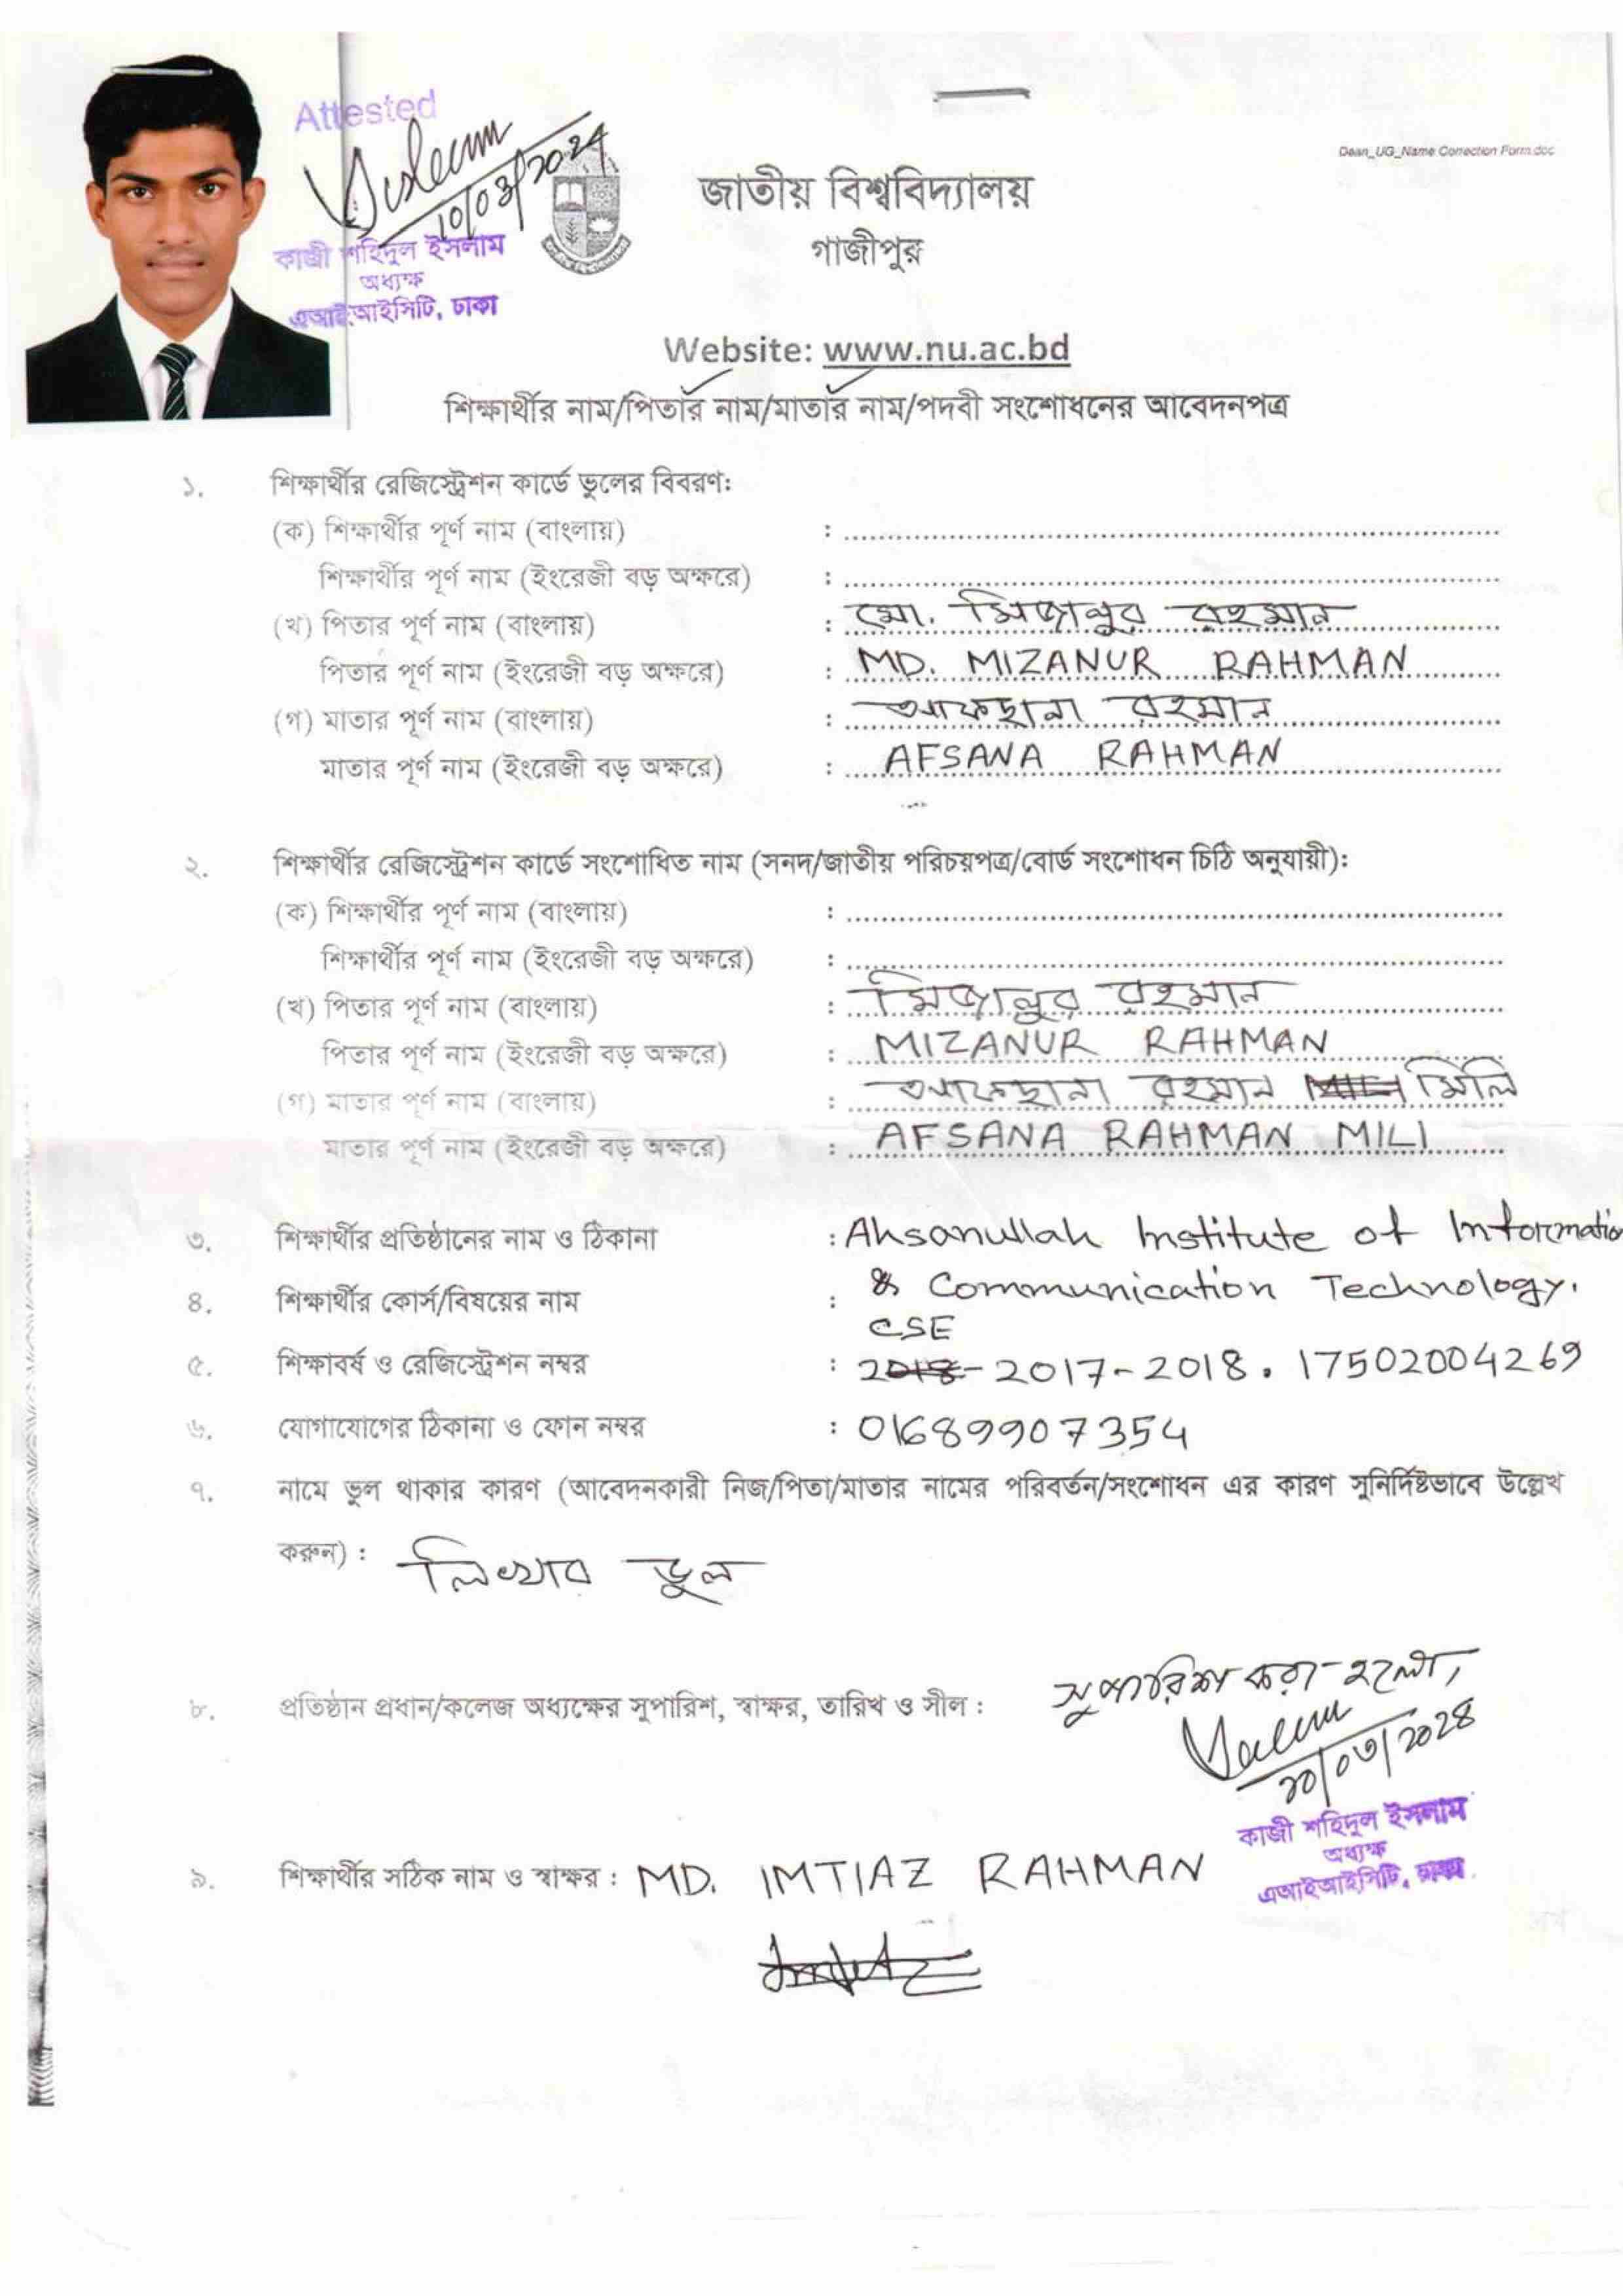 Attested
10/03/2024
কাজী শহিদুল ইসলাম
অধ্যক্ষ
এআইআইসিটি, ঢাকা
Dean_UG_Name Correction Form.doc
জাতীয় বিশ্ববিদ্যালয়
গাজীপুর
Website: www.nu.ac.bd
শিক্ষার্থীর নাম/পিতার নাম/মাতার নাম/পদবী সংশোধনের আবেদনপত্র
১. শিক্ষার্থীর রেজিস্ট্রেশন কার্ডে ভুলের বিবরণ:
(ক) শিক্ষার্থীর পূর্ণ নাম (বাংলায়) :
শিক্ষার্থীর পূর্ণ নাম (ইংরেজী বড় অক্ষরে) :
(খ) পিতার পূর্ণ নাম (বাংলায়) : মো. মিজানুর রহমান
পিতার পূর্ণ নাম (ইংরেজী বড় অক্ষরে) : MD. MIZANUR RAHMAN
(গ) মাতার পূর্ণ নাম (বাংলায়) : আফছানা রহমান
মাতার পূর্ণ নাম (ইংরেজী বড় অক্ষরে) : AFSANA RAHMAN
২. শিক্ষার্থীর রেজিস্ট্রেশন কার্ডে সংশোধিত নাম (সনদ/জাতীয় পরিচয়পত্র/বোর্ড সংশোধন চিঠি অনুযায়ী):
(ক) শিক্ষার্থীর পূর্ণ নাম (বাংলায়) :
শিক্ষার্থীর পূর্ণ নাম (ইংরেজী বড় অক্ষরে) :
(খ) পিতার পূর্ণ নাম (বাংলায়) : মিজানুর রহমান
পিতার পূর্ণ নাম (ইংরেজী বড় অক্ষরে) : MIZANUR RAHMAN
(গ) মাতার পূর্ণ নাম (বাংলায়) : আফছানা রহমান মিলি
মাতার পূর্ণ নাম (ইংরেজী বড় অক্ষরে) : AFSANA RAHMAN MILI
৩. শিক্ষার্থীর প্রতিষ্ঠানের নাম ও ঠিকানা : Ahsanullah Institute of Informatio
& Communication Technology.
৪. শিক্ষার্থীর কোর্স/বিষয়ের নাম :
CSE
৫. শিক্ষাবর্ষ ও রেজিস্ট্রেশন নম্বর : 2018- 2017-2018. 17502004269
৬. যোগাযোগের ঠিকানা ও ফোন নম্বর : 01689907354
৭. নামে ভুল থাকার কারণ (আবেদনকারী নিজ/পিতা/মাতার নামের পরিবর্তন/সংশোধন এর কারণ সুনির্দিষ্টভাবে উল্লেখ
করুন) : লিখার ভুল
৮. প্রতিষ্ঠান প্রধান/কলেজ অধ্যক্ষের সুপারিশ, স্বাক্ষর, তারিখ ও সীল : সুপারিশ করা হলো,
১০/০৩/২০২৪
কাজী শহিদুল ইসলাম
অধ্যক্ষ
এআইআইসিটি, ঢাকা
৯. শিক্ষার্থীর সঠিক নাম ও স্বাক্ষর : MD. IMTIAZ RAHMAN